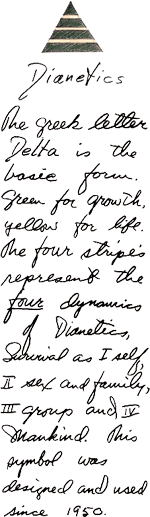 Dianetics
The greek letter
Delta is the
basic form.
Green for growth,
yellow for life.
The four stripes
represent the
four dynamics
of Dianetics,
Survival as I self,
II sex and family,
III group and IV
Mankind. This
symbol was
designed and used
since 1950.